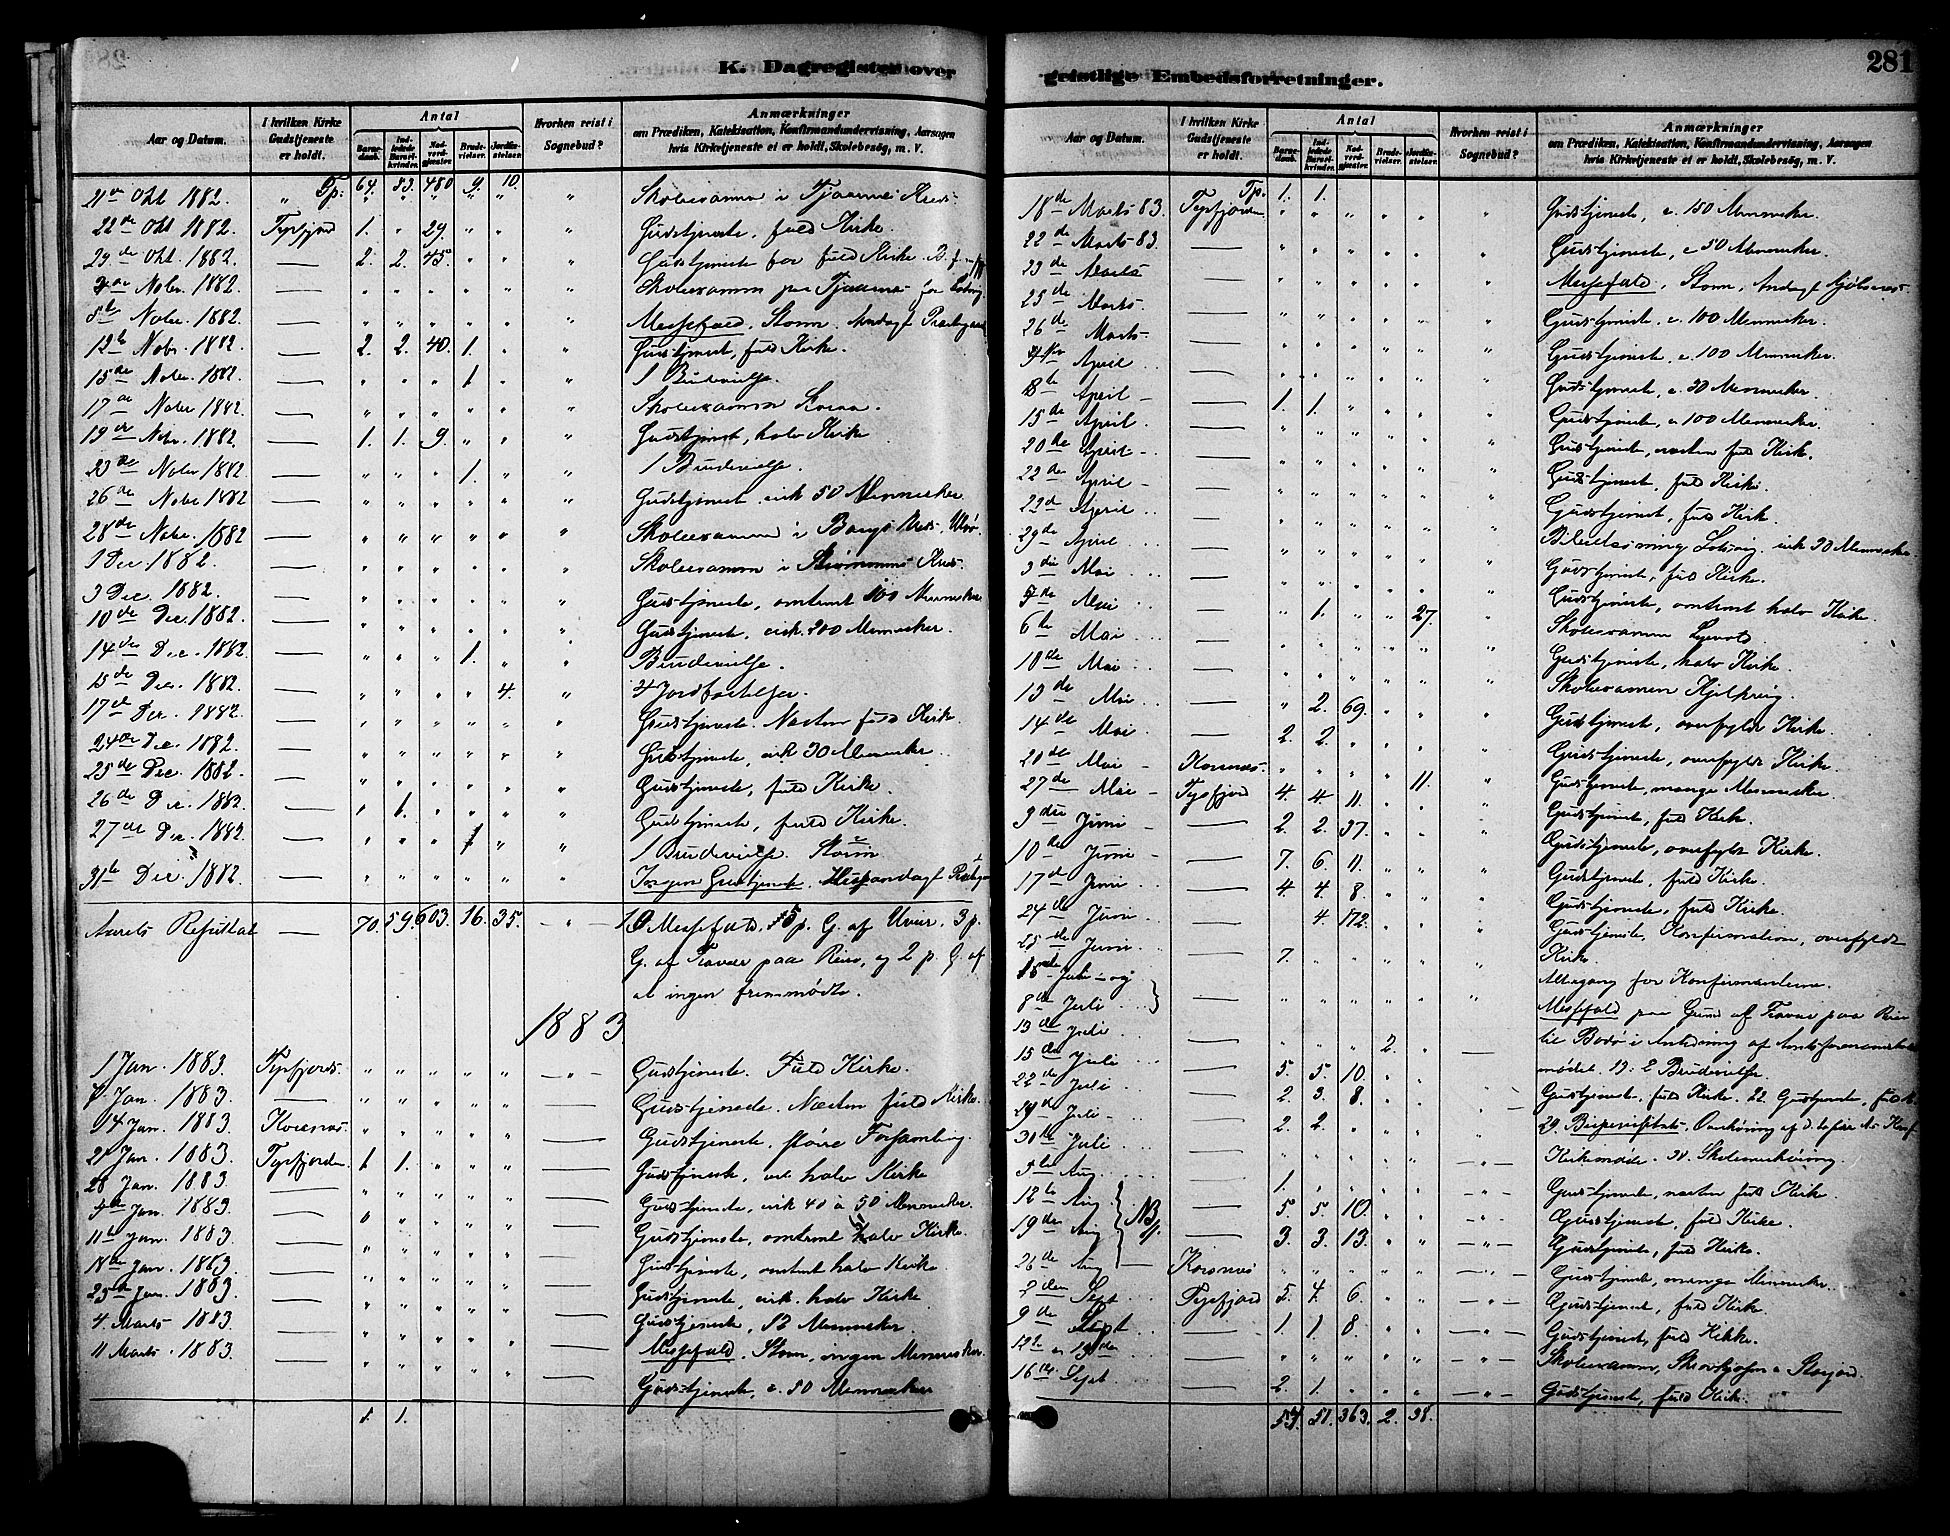 K. Dagregister over
Aar og Datum.
I hvilken Kirke Gudstjeneste er holdt.
Antal
Barnedaab.
Indledede Barselkvinder.
Nadverdgjæster.
Brudevielser.
Jordfæstelser.
Hvorhen reist i Sognebud?
Anmærkninger
om Prædiken, Katekisation, Konfirmandundervisning, Aarsagen
hvis Kirketjeneste et er holdt, Skolebesøg, m. V.
Tp: 64. 53. 480 9. 10.
21de Okt 1882. " " " " " " " Skoleexamen i Tjaarnes Kreds.
22de Okt 1882. Tysfjord 1. " 29 " " " Gudstjeneste, fuld Kirke.
29de Okt. 1882. — 2. 2. 45. " " " Gudstjeneste for fuld Kirke.
Nobr. 1882. — " " " " " " Skoleexamen paa Tjaarnes
5te Nobr. 1882. — " " " " " " Messefald. Storm. Andagt Præstegaard
12te Nobr. 1882. — 2. 2. 40. 1. " " Gudstjeneste, fuld Kirke.
15de Nobr. 1882. — " " " 1 " " 1 Brudevielse.
17de Nobr 1882 — " " " " " " Skoleexamen
19de Nobr. 1882. — 1. 1. 9. " " " Gudstjenest, halv Kirke
23de Nobr 1882 — " " " 1. " " 1 Brudevielse.
26de Nobr 1882 — " " " " " " Gudstjeneste cirk 50 Mennesker.
28de Nobr. 1882 — " " " " " " Skoleexamen i
1 Dec 1882. — " " " " " " Skoleexamen i Kreds.
3 Dec. 1882. — " " " " " " Gudstjeneste, omtrent 100 Mennesker
10de Dec. 1882. — " " " " " " Gudstjeneste, cirk. 200 Mennesker.
14de Dec. 1882. — " " " 1. " " Brudevielse.
15de Dec. 1882. — " " " " 4. " 4 Jordfæstelser.
17de Dec. 1882. — " " " " " " Gudstjeneste. Næsten fuld Kirke.
24de Dec. 1882. — " " " " " " Gudstjeneste, cirk 30 Mennesker.
25de Dec. 1882. — " " " " " " Gudstjeneste, fuld Kirke.
26de Dec. 1882. — " 1. " " " " Gudstjeneste, fuld Kirke.
27de Dec. 1882. — " " " 1 " " 1 Brudevielse. Storm
31te Dec. 1882. — " " " " " " Ingen Gudstjeneste. Husandagt
Aarets Resultat — 70. 59. 603. 16. 35. — " — 10 Messefald. 5 p. G. af Uveir, 3 p.
G. af Fravær paa Reise, og 2 p. G. af
at ingen fremmødte.
1883
1 Jan. 1883. Tysfjord. " " " " " — " — Gudstjeneste. Fuld Kirke.
7 Jan. 1883. — " " " " " — Gudstjeneste. Næsten fuld Kirke.
14 Jan. 1883. Korsnæs. " " " " " — Gudstjeneste, større Forsamling.
21 Jan. 1883. Tysfjorden 1 1. " " " — Gudstjeneste, vel halv Kirke
28 Jan. 1883. — " " " " " — Gudstjeneste, cirk 40 à 50 Mennesker.
Jan. 1883. — " " " " — Gudstjeneste, omtrent halv Kirke.
11te Jan. 1883. — " " " " " — Gudstjeneste, omtrent halv Kirke.
18de Jan. 1883 — " " " " " — Gudstjeneste, cirk. halv Kirke
25de Jan. 1883 — " " " " " — Gudstjeneste, 53 Mennesker.
4. Marts 1883. — " " " " " — Messefald. Storm, ingen Mennesker.
11 Marts. 1883. — " " " " " — Gudstjeneste, c. 50 Mennesker
1. 1.
geistlige Embedsforretninger.
281
Aar og Datum.
I hvilken Kirke Gudstjeneste er holdt.
Antal
Barnedaab.
Indledede Barselkvinder.
Nadverdgjæster.
Brudevielser.
Jordfæstelser.
Hvorhen reist i Sognebud?
Anmærkninger
om Prædiken, Katekisation, Konfirmandundervisning, Aarsagen
hvis Kirketjeneste et er holdt, Skolebesøg, m. V.
Tp. 1. 1.
18de Marts 83. Tysfjorden " " " " " " Gudstjeneste, c. 150 Mennesker.
22de Marts 83. — " " " " " " Gudstjeneste, c 50 Mennesker.
23de Marts — " " " " " " Messefald, Storm, Andagt
25de Marts. — " " " " " " Gudstjeneste, c. 100 Mennesker.
26de Marts — " " " " " " Gudstjeneste, c. 100 Mennesker.
April — " " " " " " Gudstjeneste, c. 30 Mennesker.
8de April — 1. 1. " " " " Gudstjeneste, c 100 Mennesker.
15de April — " " " " " " Gudstjeneste, næsten fuld Kirk.
20de April — " " " " " " Gudstjeneste, fuld Kirke.
22de April — " " " " " " Gudstjenest, fuld Kirk.
April — " " " " " " Bibellæsning cirk 30 Mennesker
29de April — " " " " " " Gudstjeneste, fuld Kirke.
3die Mai — " " " " " " Gudstjeneste, omtrent halv Kirke.
Mai — " 1. " " 27. " Skoleexamen
6te Mai — " " " " " " Gudstjeneste, halv Kirke.
10de Mai — " " " " " " Skoleexamen
13de Mai — " 2. 69. " " " Gudstjeneste, overfyldt Kirke.
14de Mai — 2. 2. " " " " Gudstjeneste, overfyldt Kirke.
20de Mai Korsnæs. " " " " 11. " Gudstjeneste, mange Mennesker.
27de Mai Tysfjord 4. 4. 11. " " " Gudstjeneste, fuld Kirk.
3die Juni — 2. 2. 37. " " " Gudstjeneste, overfyldt Kirke.
10de Juni — 7. 6. 11. " " " Gudstjeneste, fuld Kirke.
17de Juni — 4. 4. 8. " " " Gudstjeneste, fuld Kirke.
24de Juni — 4. 172. " " " Gudstjeneste, Konfirmation, overfyldt
25de Juni — 7. " " " Kirke.
Juli og — " " " " " " Altergang for Konfirmanterne
8de Juli Messefald paa Grund af Fravær paa Reise
13de Juli — " " " 2. " — til Bodø i Anledning af
15de Juli — 5. 5. 10. " " mødet. 13. 2 Brudevielser.
22de Juli — 2. 3. 8. " " — Gudstjeneste, fuld Kirke. 22 Gudstjeneste, fuld K.
29de Juli — 2. 2. " " " — 29 Bispevisitats,
30te Juli — " " " " " — " — Kirkemøde. 31.
5te Aug. — 1. " " " " — " — Gudstjeneste, næsten fuld Kirke.
12te Aug NB — 5. 5. 10. " " — " — Gudstjeneste, fuld Kirke.
19de Aug — 3. 3. 13. " " — " — Gudstjeneste, fuld Kirke.
26de Aug Korsnæs " " " " " — " — Gudstjeneste, mange Mennesker.
2den Sept Tysfjord 5. 4. 6. " " — " — Gudstjeneste, fuld Kirke.
9de Sept — 1. 1. 8. " " — " — Gudstjeneste, fuld Kirke.
12te 13de — " " " " " — " — Skoleexamen,
16de Sept — 2. 1. " " " — " — Gudstjeneste, fuld Kirk.
54. 51. 363. 2. 38.